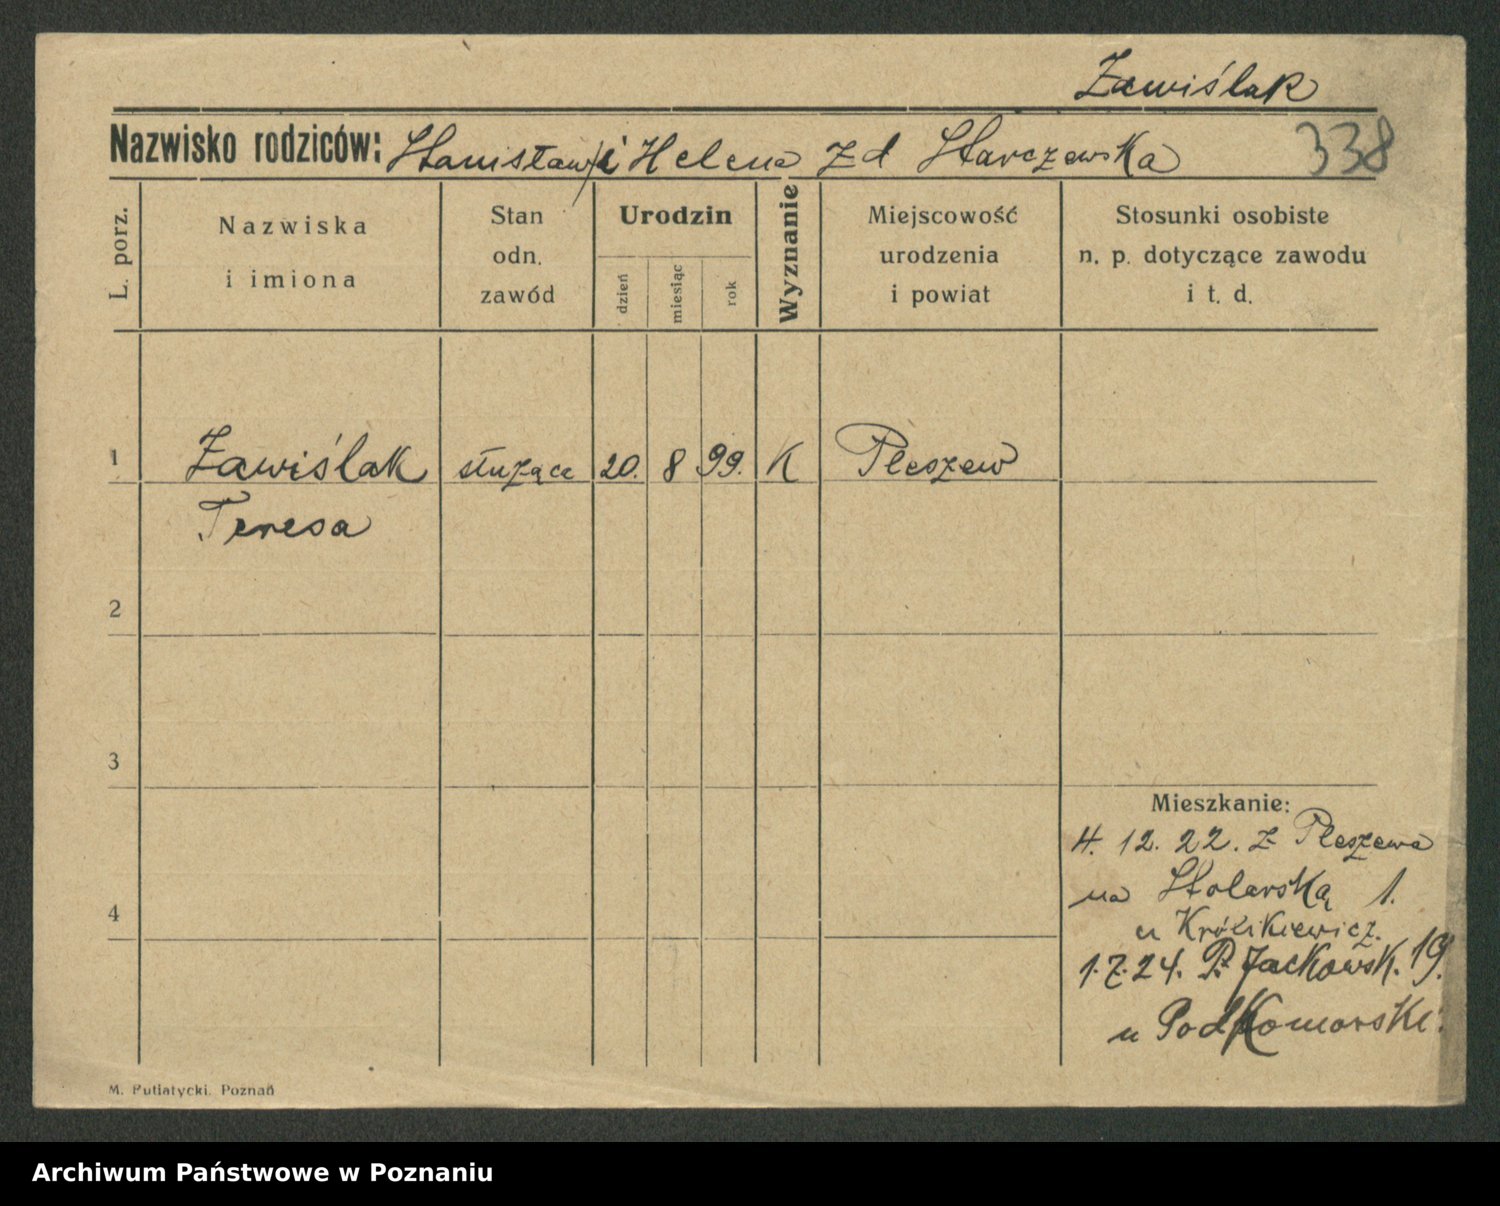 Zawiślak
Nazwisko rodziców: Stanisław i Helena zd Starczewska 338
L. porz.
Nazwiska
i imiona
Stan
odn.
zawód
Urodzin
dzień
miesiąc
rok
Wyznanie
Miejscowość
urodzenia
i powiat
Stosunki osobiste
n. p. dotyczące zawodu
i t. d.
1 Zawiślak służąca 20. 8 99. K Pleszew
Teresa
2
3
Mieszkanie:
4. 12. 22. z Pleszewa
na Stolarską 1.
4
u Królikiewicz.
1.7.24. P. Jackowsk. 19.
u Podkomorski.
M. Putiatycki. Poznań
Archiwum Państwowe w Poznaniu